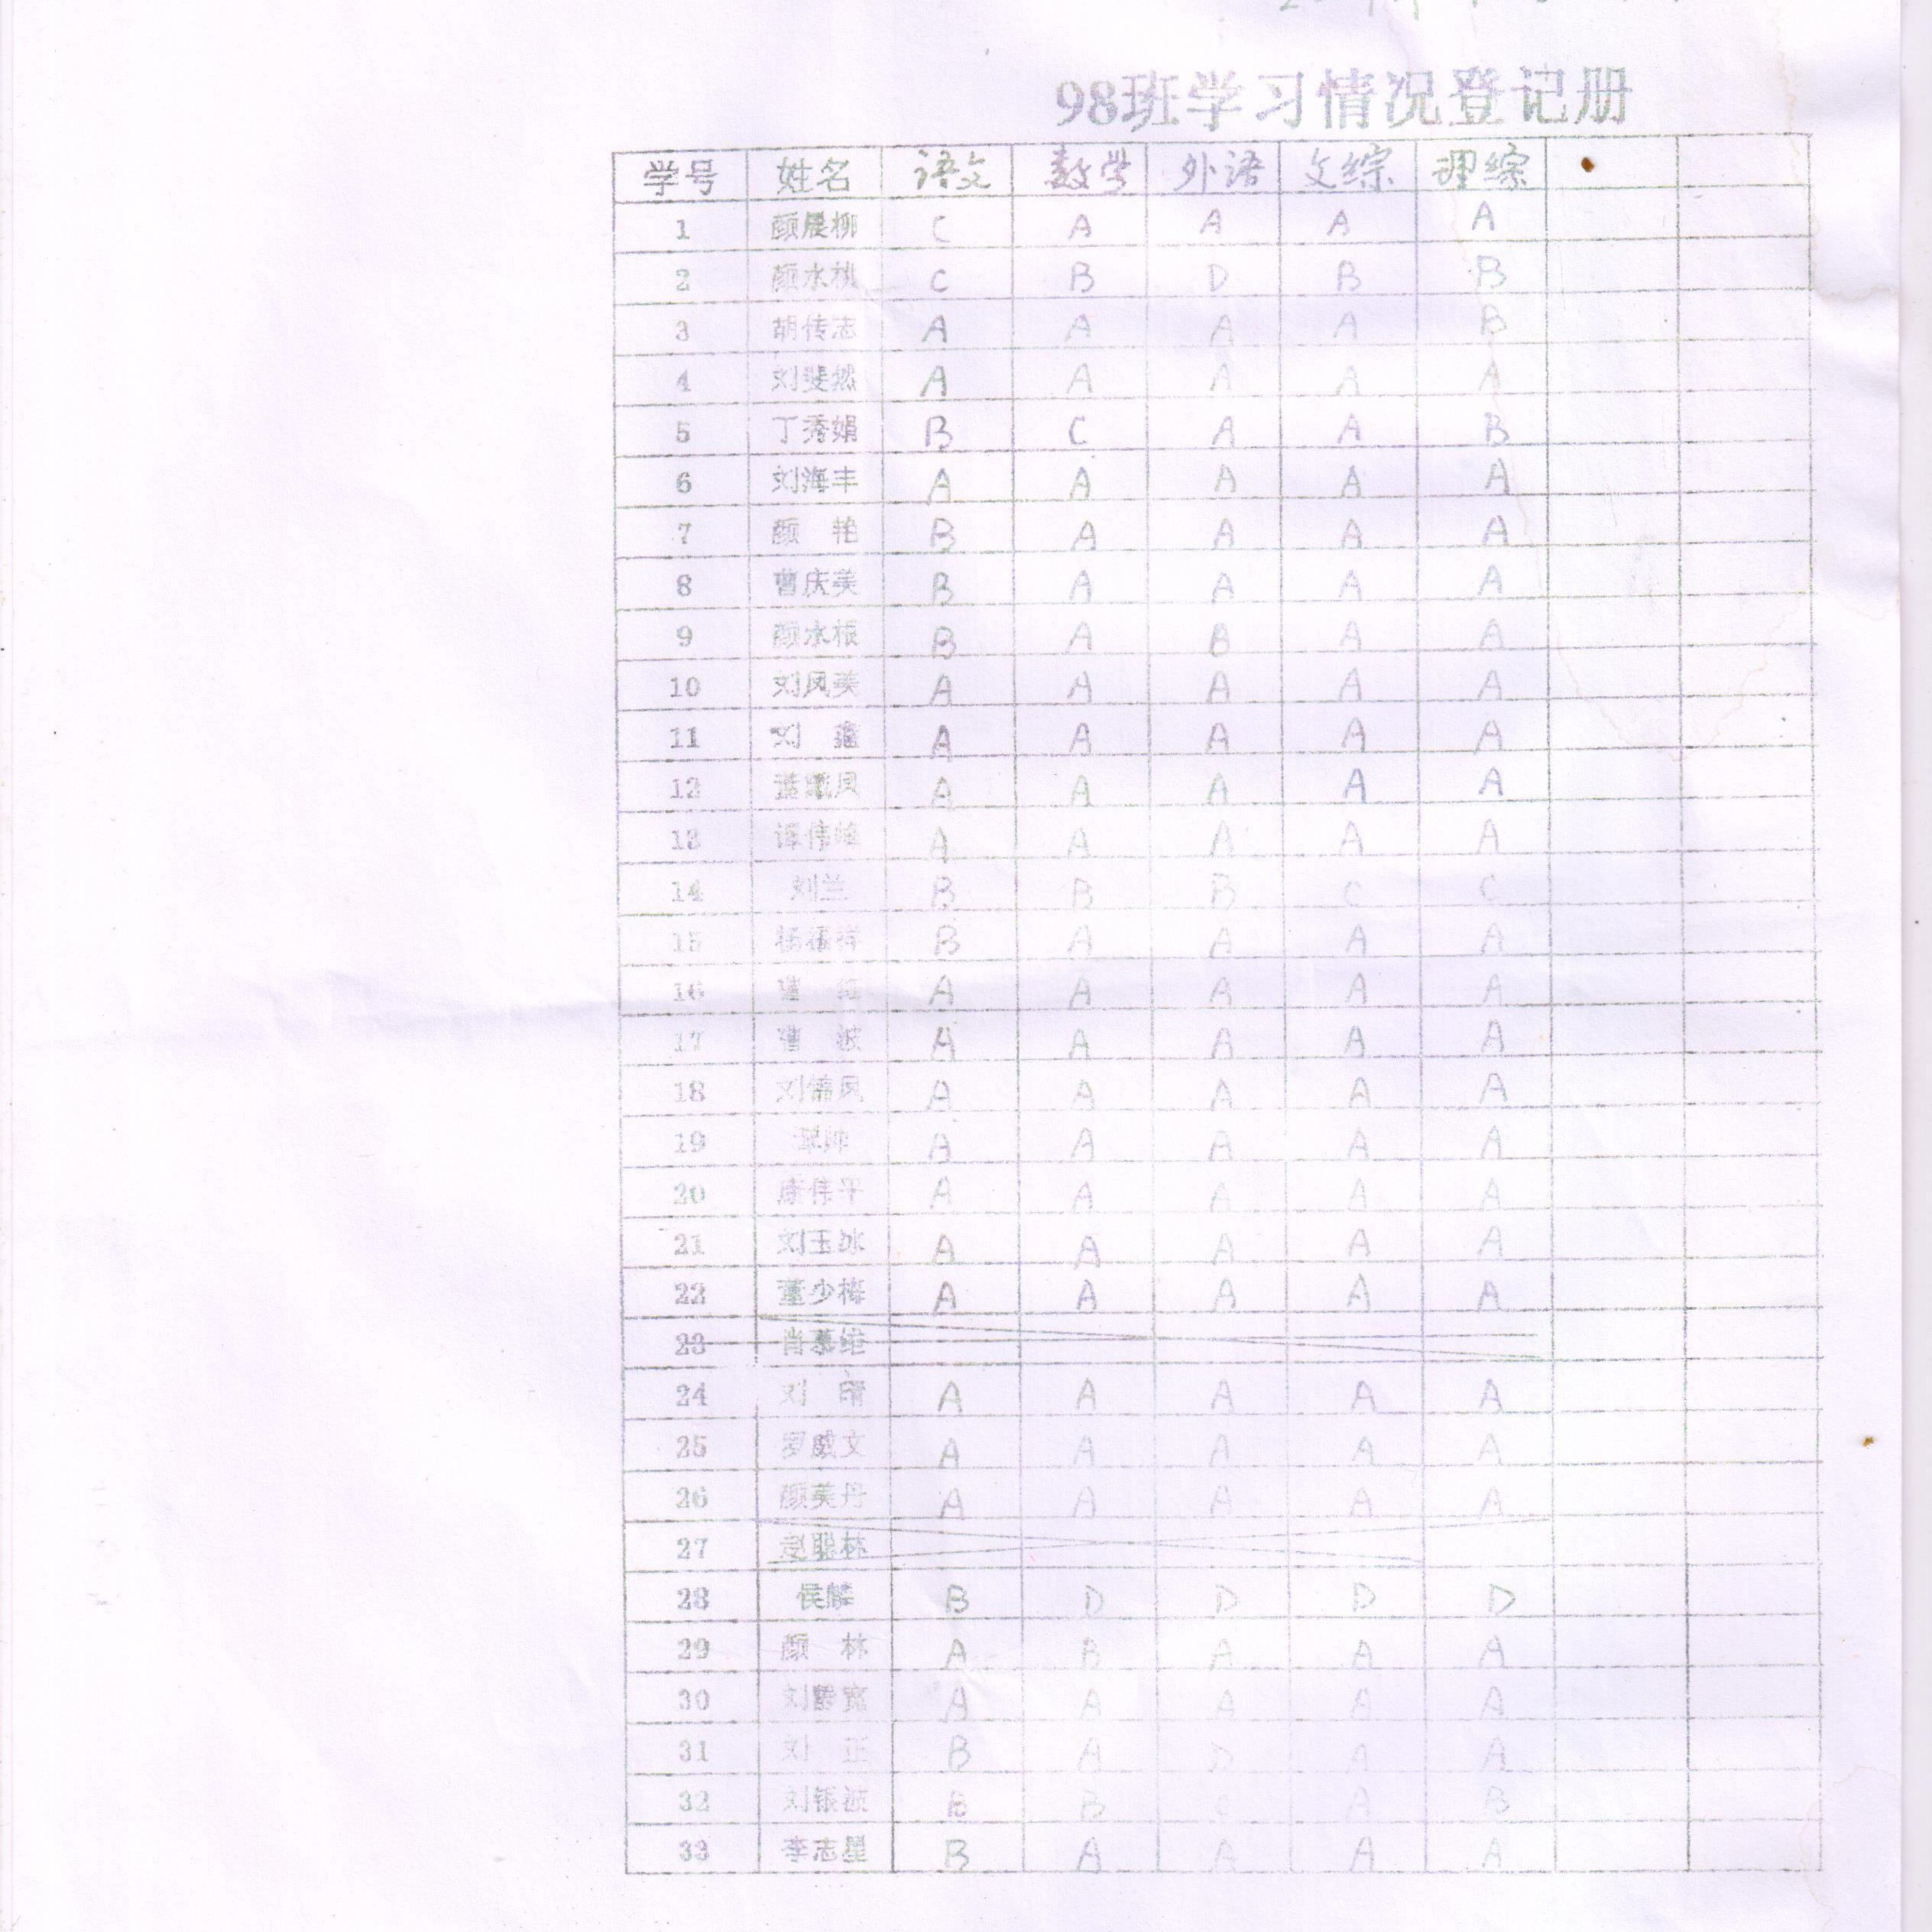 98班学习情况登记册
学号 姓名 语文 数学 外语 文综 理综
1 颜晨柳 C A A A A
2 颜水桃 C B D B B
3 胡传志 A A A A B
4 刘斐然 A A A A A
5 丁秀娟 B C A A B
6 刘海丰 A A A A A
7 颜 艳 B A A A A
8 曹庆美 B A A A A
9 颜水根 B A B A A
10 刘凤美 A A A A A
11 刘 鑫 A A A A A
12 A A A A A
13 谭伟峰 A A A A A
14 刘兰 B B B C C
15 杨福祥 B A A A A
16 董 红 A A A A A
17 曹 波 A A A A A
18 刘锦凤 A A A A A
19 A A A A A
20 康伟平 A A A A A
21 刘玉冰 A A A A A
22 董少梅 A A A A A
23 肖慕维
24 刘 晴 A A A A A
25 罗威文 A A A A A
26 颜美丹 A A A A A
27 赵聪林
28 侯麟 B D D D D
29 颜 林 A B A A A
30 A A A A A
31 刘 正 B A D A A
32 刘银 B B A B
33 李志星 B A A A A